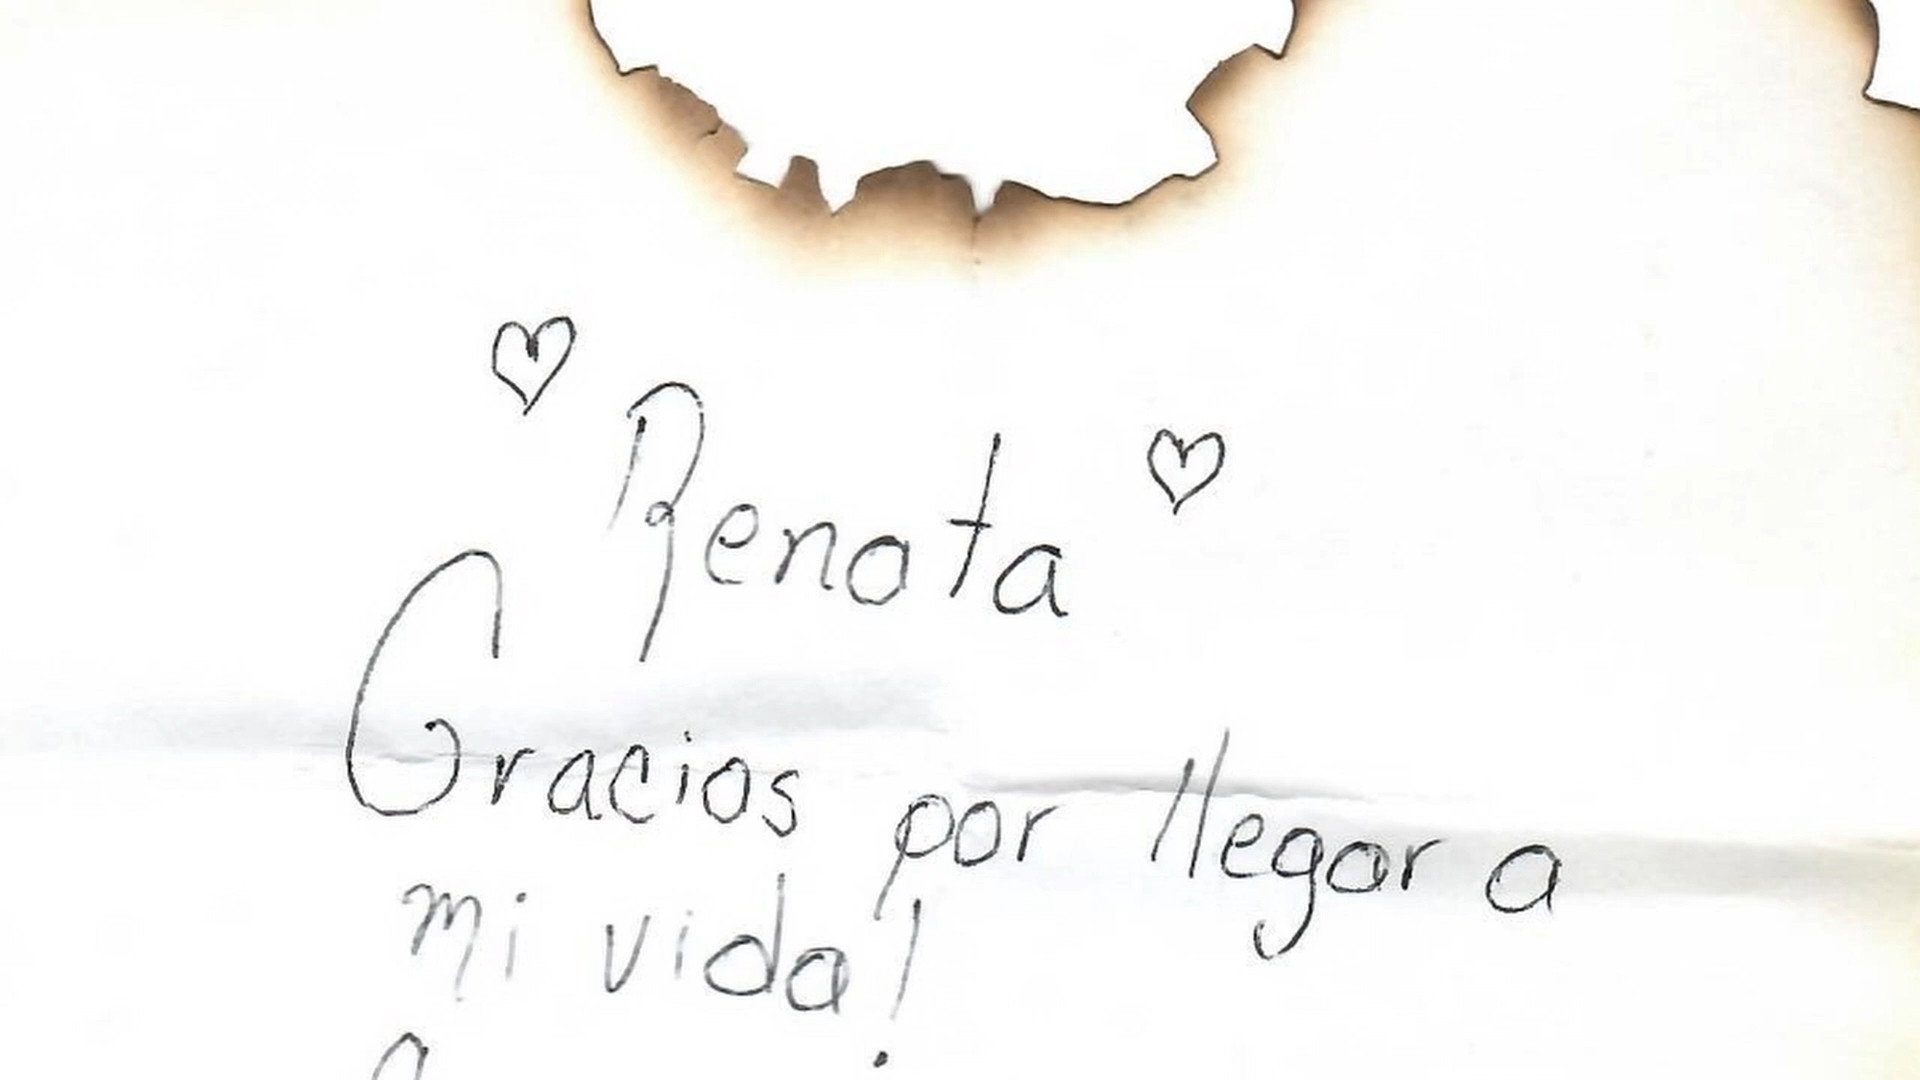 ♡ Renata ♡
Gracias por llegar a
mi vida!